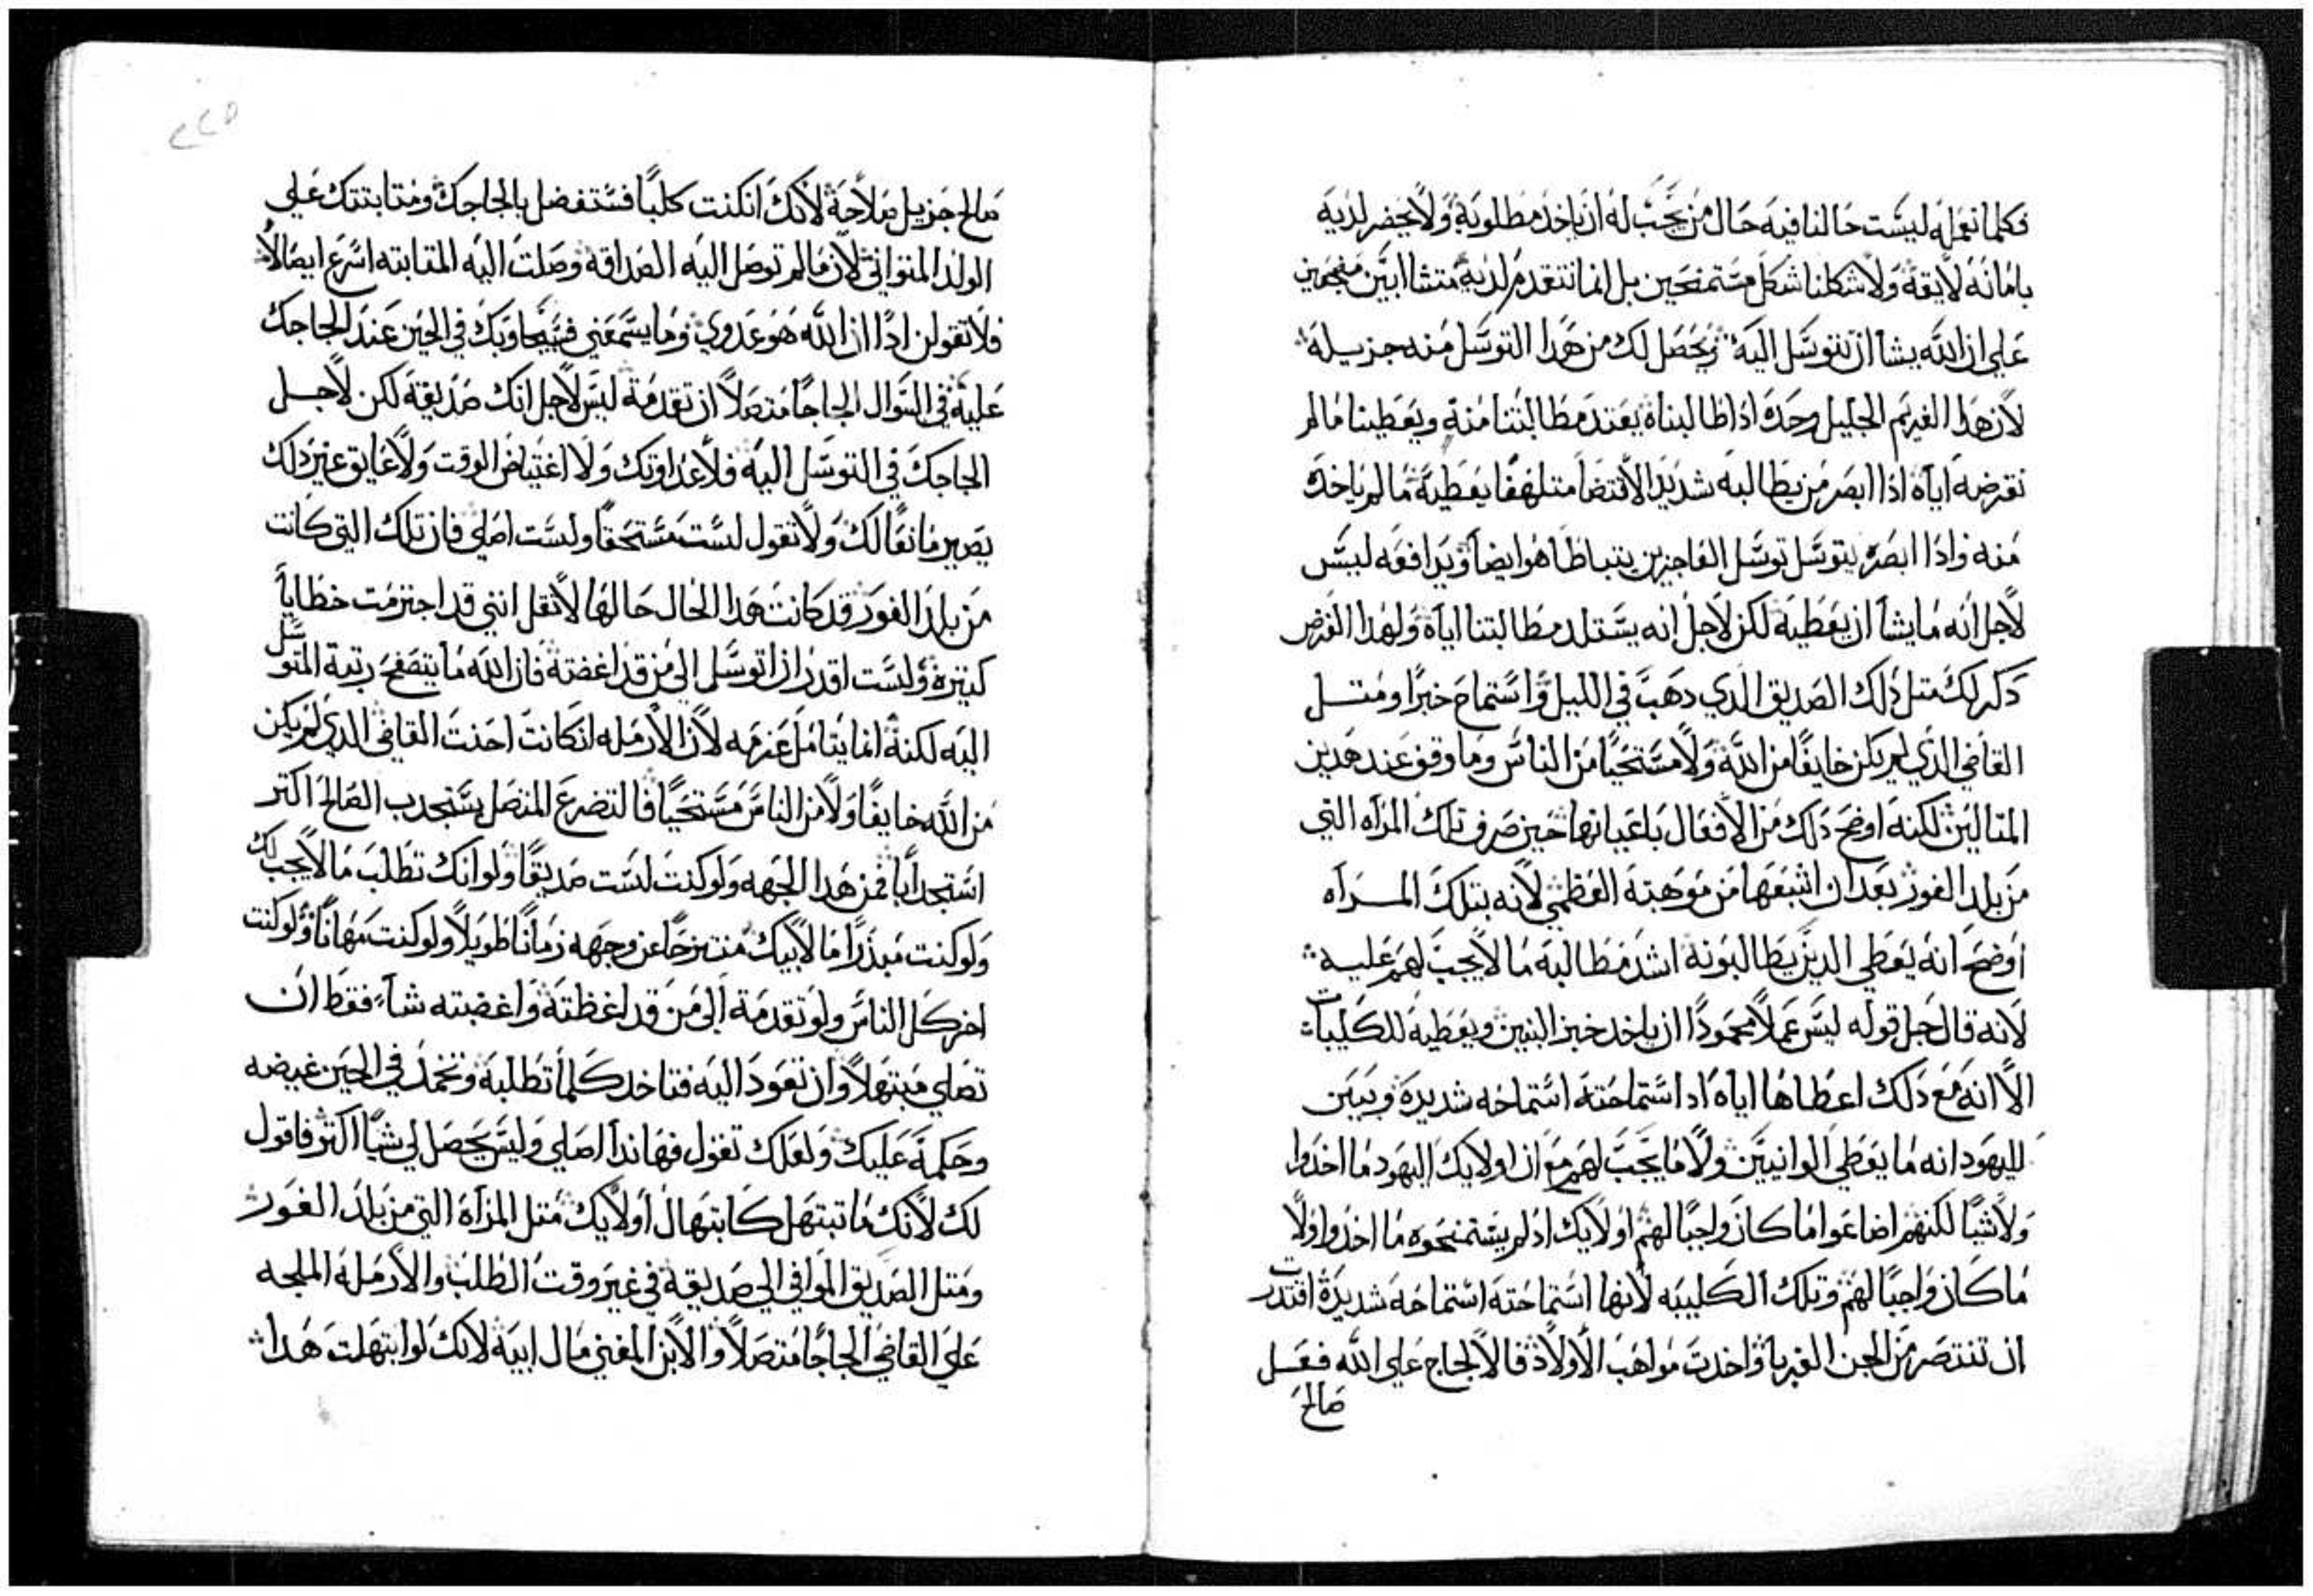 فكلما نعمله ليست حالنا فيه حال من يجب له ان ياخد مطلوبة ولا يحضر لديه
بامانه لايقة ولا شكلنا شكل مستمنحين بل انما نتقدم لديه متشاابين
علي ان الله يشا ان نتوسل اليه ويحصل لك من هدا التوسل منه جزيله
لان هدا الغريم الجليل وحده ادا طالبناه يعتد مطالبتنا منة ويعطينا ما لم
نقرضه اياه ادا ابصر من يطالبه شديد الاقتضا متلهفا يعطية ما لم ياخده
منه وادا ابصره يتوسل توسل العاجزين يتباطا هو ايضا ويدافعه ليس
لاجل انه ما يشا ان يعطية لكن لاجل انه يستلد مطالبتنا اياه ولهدا الغرض
دكر لك متل دلك الصديق الدي دهب في الليل واستماح خبزا ومتل
القاضي الدي لم يكن خايفا من الله ولا مستحيا من الناس وما وقف عند هدين
المتالين لكنه اوضح دلك من الافعال باعيانها حين صرف تلك المراه التي
من بلد الفور بعد ان اشبعها من موهبته العظمي لانه بتلك المراه
اوضح انه يعطي الدين يطالبونة اشد مطالبة ما لا يجب لهم عليه
لانه قال جل قوله ليس عملا محمودا ان ياخد خبز البنين ويعطية للكليبات
الا انه مع دلك اعطاها اياه اد استماحته استماحه شديدة وبين
لليهود انه ما يعطي الوانيين ولا ما يجب لهم مع ان اولايك اليهود ما اخدوا
ولا شيا لكنهم اضاعوا ما كان واجبا لهم اولايك اد لم يستمنحوه ما اخدوا ولا
ما كان واجبا لهم وتلك الكليبه لانها استماحته استماحة شديدة اقتدرت
ان تنتصر من الجن الغربا واخدت مواهب الاولاد فالالجاج علي الله فعل
صالح
٢٢٥
صالح جزيل صلاحة لانك ان كنت كلبا فستفضل بالجاجك ومتابتتك علي
الولد المتواني لان ما لم توصل اليه الصداقة وصلت اليه المتابته اسرع ايصالا
فلا تقولن ادا ان الله هو عدوي وما يسمعني فسيجاوبك في الحين عند الجاجك
علية في السوال الجاجا متصلا ان تقدمة ليس لاجل انك صديقة لكن لاجل
الجاجك في التوسل اليه فلا عداوتك ولا اعتياض الوقت ولا عايق غير دلك
يصير مانعا لك ولا تقول لست مستحقا ولست اصلي فان تلك التي كانت
من بلد الفور قد كانت هدا الحال حالها لا تقل انني قد اجترمت خطايا
كتيرة ولست اقدر ان اتوسل الي من قد اغضته فان الله ما يتصفح رتبة المتوسل
اليه لكنة انما يتامل عزمه لان الارمله ان كانت احنت القاضي الدي لم يكن
من الله خايفا ولا من الناس مستحيا فالتضرع المتصل يستجدب الصالح اكتر
استجدابا فمن هدا الجهه ولو كنت لست صديقا ولو انك تطلب ما لا يجب لك
ولو كنت مبدرا مال ابيك منتزحا عن وجهه زمانا طويلا ولو كنت مهانا ولو كنت
اخر كل الناس ولو تقدمة الي من قد اغظته واغضبته شاء فقط ان
تصلي مبتهلا وان تعود اليه فتاخد كلما تطلبة وتخمد في الحين غيضه
وحكمه عليك ولعلك تقول فهاندا اصلي وليس يحصل لي شيا اكتر فاقول
لك لانك ما تبتهل كابتهال اولايك متل المراة التي من بلد الفور
ومتل الصديق الموافي الي صديقة في غير وقت الطلب والارملة الملجه
علي القاضي الجاجا متصلا والابن المفني مال ابية لانك لو ابتهلت هدا